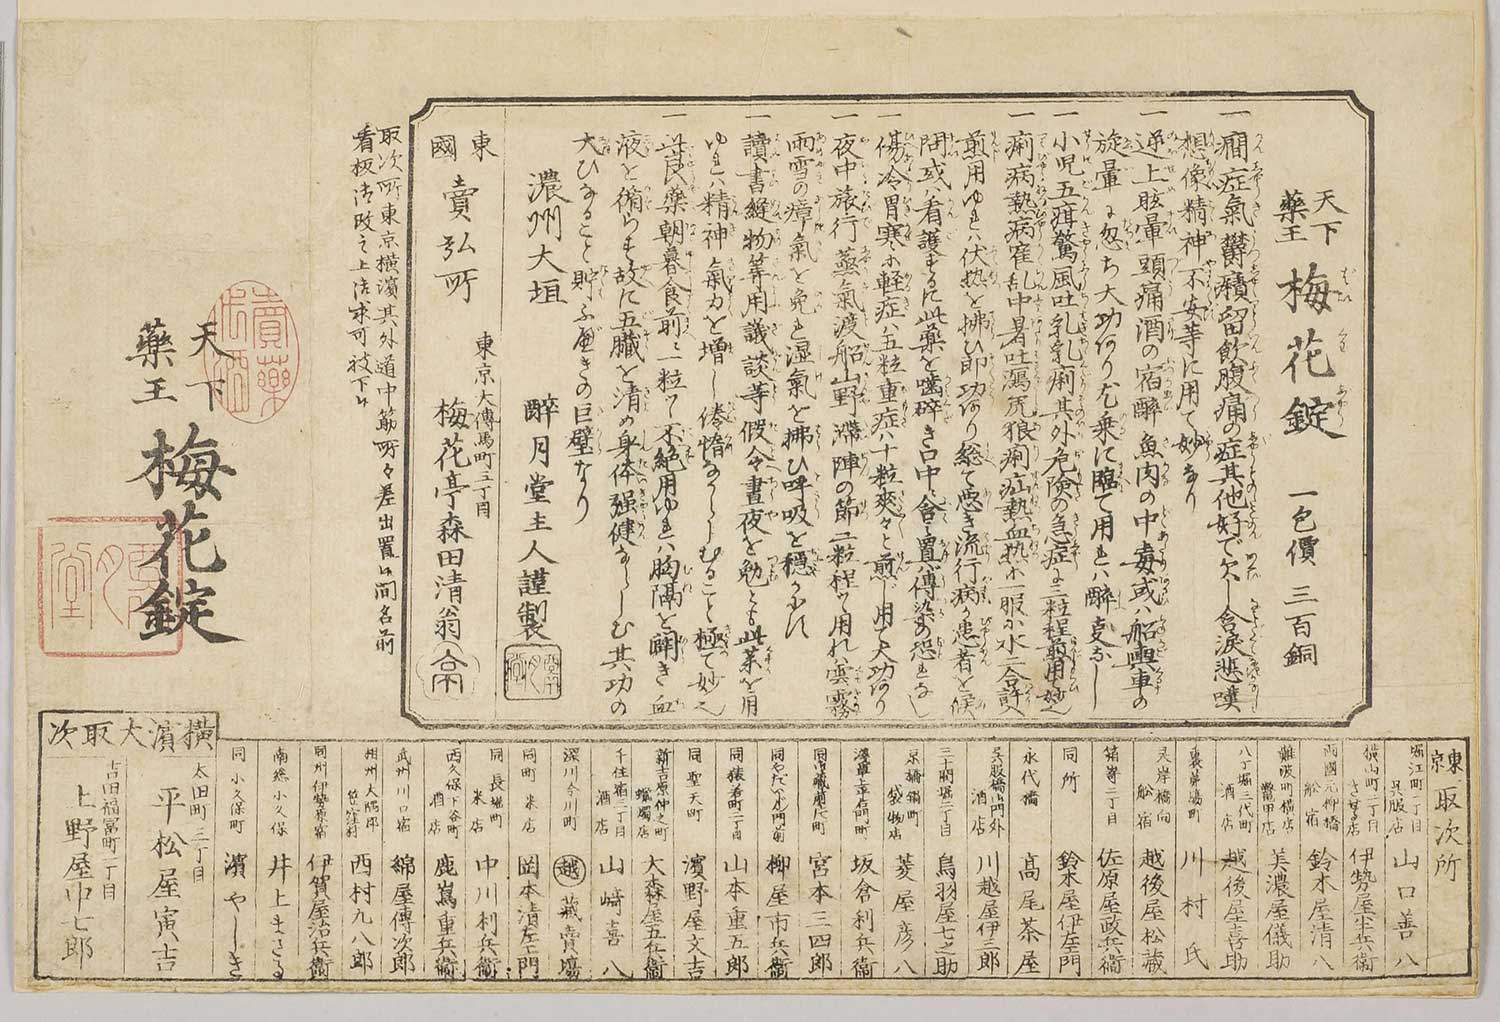 天下
藥王
梅花錠
一包價 三百銅
一 癇症氣欝癪留飲腹痛の症其他好で欠し含涙悲嘆
想像精神不安等に用て妙なり
一 逆上眩暈頭痛酒の宿酔魚肉の中毒或ハ船輿車の
旋暈に忽ち大功あり尤乗に臨て用れハ醉憂なし
一 小児五疳驚風吐乳乳痢其外危険の急症に三粒程煎用妙也
一 痢病熱病霍乱中暑吐瀉瓜狼痢疝熱血熱ホ一服か水二合許へ
煎用ゆれハ伏熱を拂ひ即功あり総て悪き流行病の患者を候
問或ハ看護するに此藥を噛碎き口中に含置ハ傳染の恐れなし
一 傷冷胃寒ホ軽症ハ五粒重症ハ十粒爽々と煎じ用て大功あり
一 夜中旅行蒸氣渡船山野滞陣の節二粒程ツ用れハ雲霧
雨雪の瘴氣を免れ湿氣を拂ひ呼吸を穏かにす
一 讀書縫物等用議談等假令晝夜を勉とも此薬を用
ゆれハ精神氣力を増し倦惰なからしむること極て妙也
一 此良藥朝暮食前ニ一粒ツ不絶用ゆれハ胸隔を開き血
液を循らす故に五臓を清め身体强健ならしむ其功の
大ひなること貯ふ可きの巨璧なり
濃州大垣 醉月堂主人謹製
東國 賣弘所
東京大傳馬町二丁目
梅花亭森田清翁
取次所東京横濱其外道中筋所々差出置候間名前
看板御改之上御求可被下候
天下
藥王
梅花錠
賣藥
東京 取次所
堀江町二丁目 呉服店 山口善八
横山町二丁目 きせる店 伊勢屋半兵衛
両國元柳橋 舩宿 鈴木屋清八
難波町横店 美濃屋儀助
八丁堀三代町 酒店 越後屋喜助
川村氏
灵岸橋向 舩宿 越後屋松蔵
箱﨑二丁目 佐原屋政兵衛
同所 鈴木屋伊左エ門
永代橋 高尾茶屋
呉服橋御門外 酒店 川越屋伊三郎
三十間堀二丁目 鳥羽屋七之助
京橋鍋町 袋物店 菱屋彦八
坂倉利兵衛
宮本三四郎
柳屋市兵衛
同猿若町二丁目 山本重五郎
同聖天町 濱野屋文吉
新吉原仲之町 蝋燭店 大森屋五兵衛
千住宿三丁目 酒店 山﨑喜八
深川今川町 越 蔵賣場
同町 米店 岡本清左エ門
同長堀町 米店 中川利兵衛
西久保下谷町 酒店 鹿嶌重兵衛
武州川口宿 綿屋傳次郎
西村九八郎
同州伊勢原宿 伊賀屋治兵衛
南総小久保 井上まさる
同小久保町 濱やしき
横濱大取次
太田町三丁目 平松屋寅吉
吉田福冨町二丁目 上野屋巾七郎